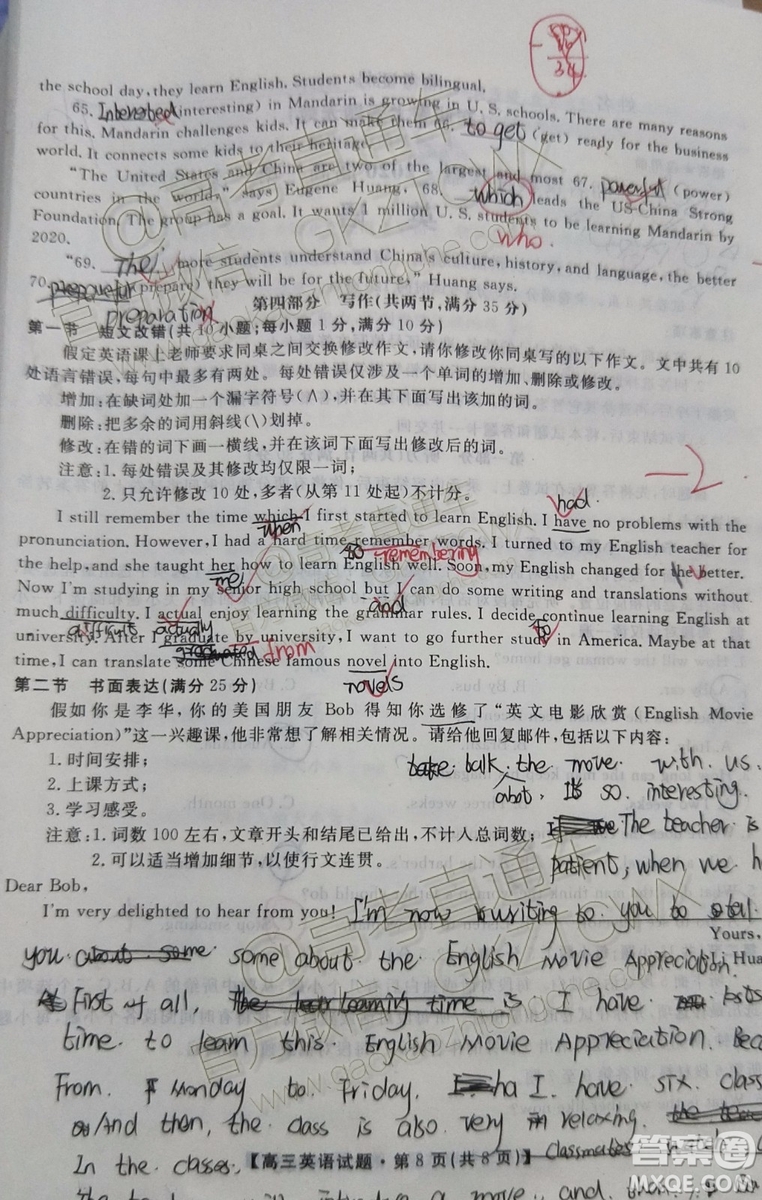 the school day, they learn English. Students become bilingual.
65. Interested (interesting) in Mandarin is growing in U. S. schools. There are many reasons
for this. Mandarin challenges kids. It can make them 66. to get (get) ready for the business
world. It connects some kids to their heritage.
"The United States and China are two of the largest and most 67. powerful (power)
countries in the world," says Eugene Huang, 68. which leads the US-China Strong
Foundation. The group has a goal. It wants 1 million U. S. students to be learning Mandarin by
who
2020.
"69. The more students understand China's culture, history, and language, the better
70. (prepare) they will be for the future," Huang says.
preparation
第四部分 写作(共两节,满分 35 分)
第一节 短文改错(共 10 小题;每小题 1 分,满分 10 分)
假定英语课上老师要求同桌之间交换修改作文,请你修改你同桌写的以下作文。文中共有 10
处语言错误,每句中最多有两处。每处错误仅涉及一个单词的增加、删除或修改。
增加:在缺词处加一个漏字符号(∧),并在其下面写出该加的词。
删除:把多余的词用斜线(\)划掉。
修改:在错的词下画一横线,并在该词下面写出修改后的词。
注意:1. 每处错误及其修改均仅限一词;
-2
2. 只允许修改 10 处,多者(从第 11 处起)不计分。
had
I still remember the time which I first started to learn English. I have no problems with the
when
pronunciation. However, I had a hard time remember words. I turned to my English teacher for
to remembering
the help, and she taught her how to learn English well. Soon, my English changed for the better.
me
Now I'm studying in my senior high school but I can do some writing and translations without
and
much difficulty. I actual enjoy learning the grammar rules. I decide continue learning English at
difficult actually to
university. After I graduate by university, I want to go further study in America. Maybe at that
graduated from
time, I can translate some Chinese famous novel into English.
novels
第二节 书面表达(满分 25 分)
假如你是李华,你的美国朋友 Bob 得知你选修了"英文电影欣赏(English Movie
Appreciation)"这一兴趣课,他非常想了解相关情况。请给他回复邮件,包括以下内容:
1. 时间安排;
talk the move with us.
2. 上课方式;
abot. It's so interesting.
3. 学习感受。
注意:1. 词数 100 左右,文章开头和结尾已给出,不计入总词数;
The teacher is
2. 可以适当增加细节,以使行文连贯。
patient, when we h
Dear Bob,
I'm very delighted to hear from you! I'm now writing to you to
Yours,
you some about the English Movie Appreciation.
Li Hua
First of all, I have
time to learn this English Movie Appreciation.
From Monday to Friday. I have six class
And then, the class is also very relaxing.
In the classes,
【高三英语试题·第 8 页(共 8 页)】
@高考直通车
官方微信:GKZTCWX
www.gaokaozhitongche.com
答案圈
MXQE.COM